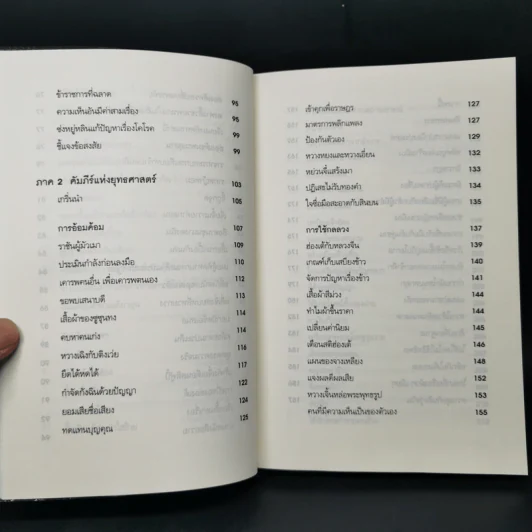 ข้าราชการที่ฉลาด 95
ความเห็นอันมีค่าสามเรื่อง 95
ซ่งหยู่หลินแก้ปัญหาเรื่องโคโรค 99
ชี้แจงข้อสงสัย 99
ภาค 2 คัมภีร์แห่งยุทธศาสตร์ 103
เกริ่นนำ 105
การอ้อมค้อม 107
ราชันผู้มัวเมา 109
ประเมินกำลังก่อนลงมือ 110
เคารพคนอื่น เพื่อเคารพตนเอง 112
ขอพบเสนาบดี 113
เสื้อผ้าของซูซุนทง 114
คบหาคนเก่ง 114
หวางเฉิงกับติงเว่ย 116
ยึดได้หดได้ 121
กำจัดกังฉินด้วยปัญญา 122
ยอมเสียชื่อเสียง 124
ทดแทนบุญคุณ 125
เข้าคุกเพื่อราษฎร 127
มาตรการพลิกแพลง 127
ป้องกันตัวเอง 129
หวางหยงและหวางเยี่ยน 132
หย่วนจี๋แสร้งเมา 133
ปฏิเสธไม่รับทองคำ 134
ใจซื่อมือสะอาดกับสินบน 135
การใช้กลลวง 137
ฮ่องเต้กับหลวงจีน 139
เกณฑ์เก็บเสบียงข้าว 140
จัดการปัญหาเรื่องข้าว 141
เสื้อผ้าสีม่วง 144
ทำไมผ้าขึ้นราคา 144
เปลี่ยนค่านิยม 144
เตือนสติฮ่องเต้ 146
แผนของจางเหลียง 148
แจงผลดีผลเสีย 152
หวางเจิ้นหล่อพระพุทธรูป 153
คนที่มีความเห็นเป็นของตัวเอง 155